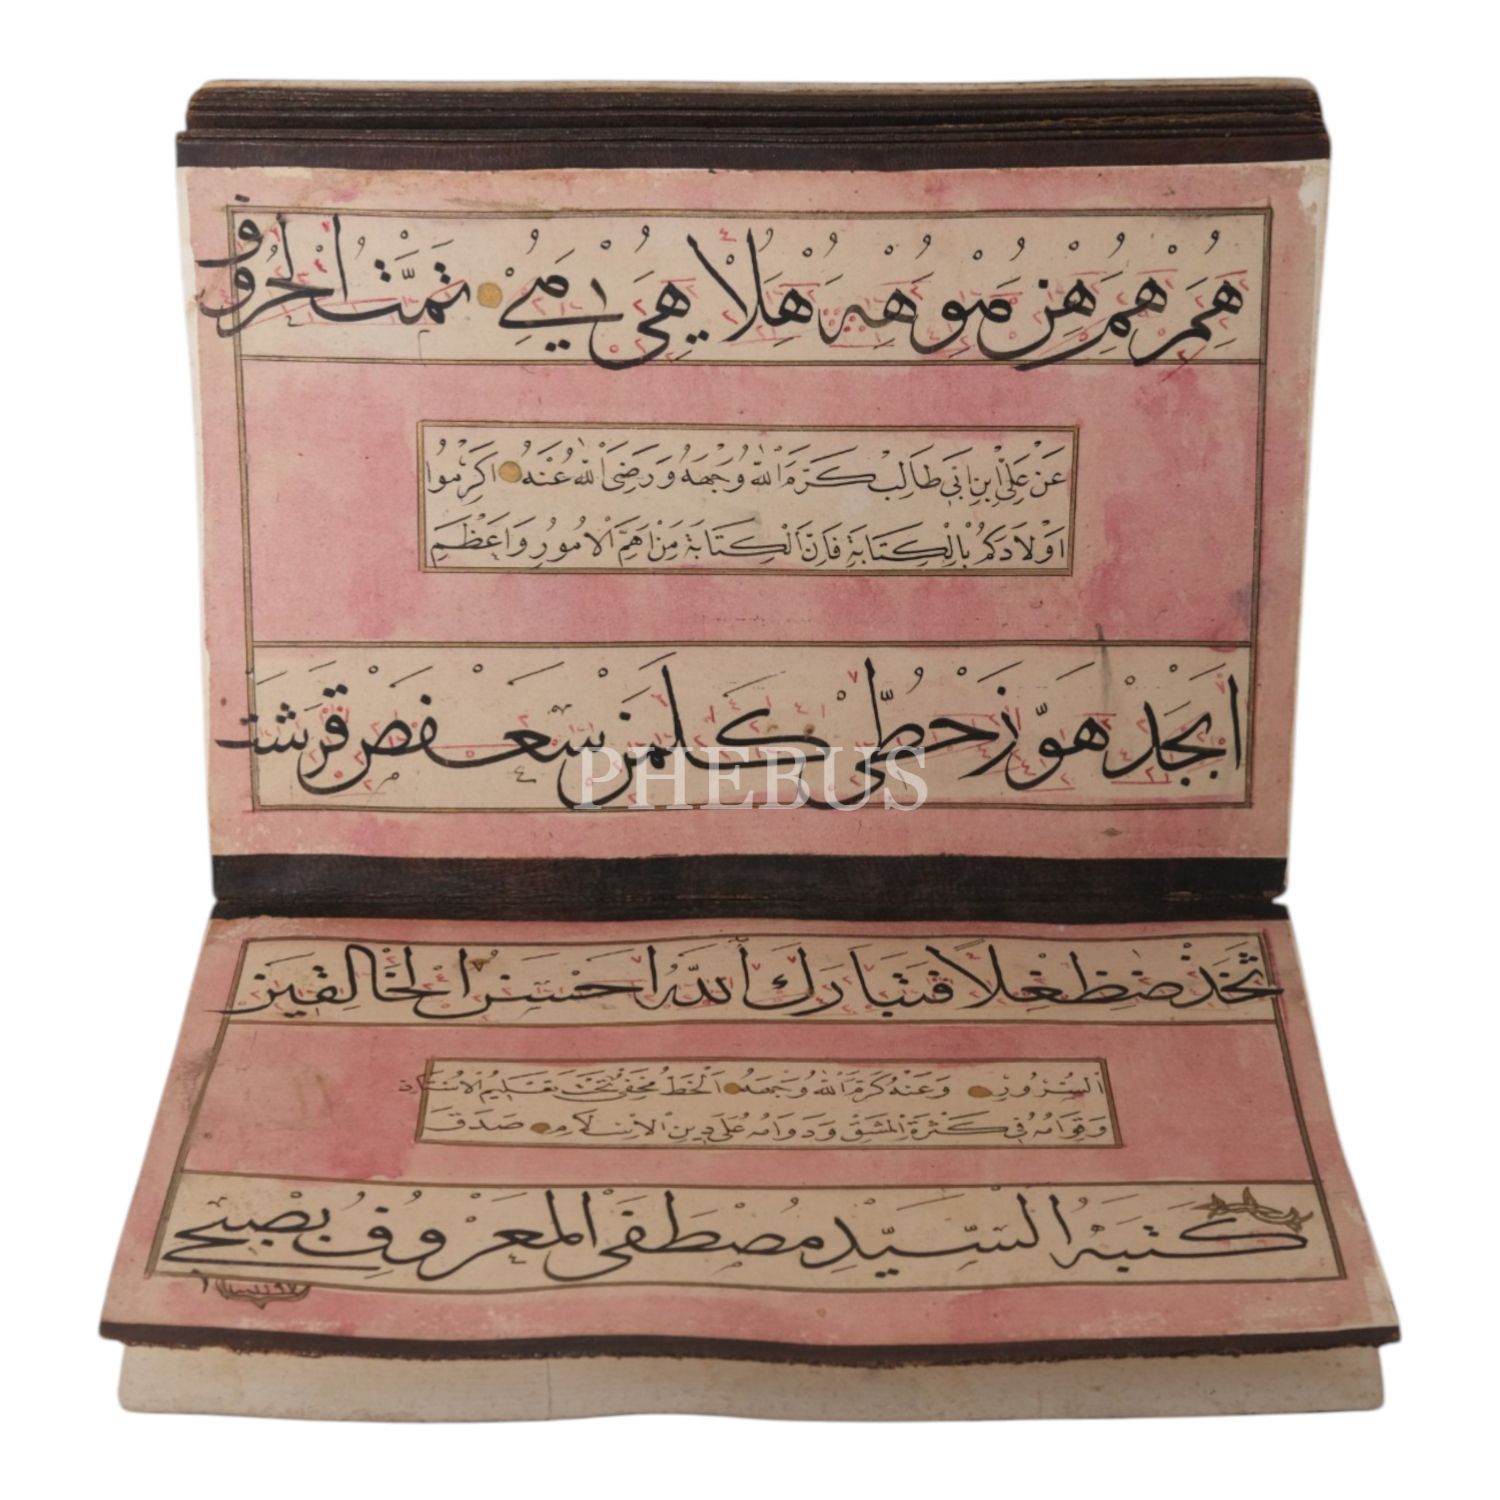 هُمَرْ هُمَ هِنْ مَوُهْ هِهُ هَلَا هِىَ ىُرْ مِىْ تَمَّتْ الْحُرُوفُ
عَنْ عَلِىِّ ابْنِ اَبِى طَالِبْ كَرَّمَ اللّٰهُ وَجْهَهُ وَرَضِىَ اللّٰهُ عَنْهُ اَكْرِمُوا
اَوْلَادَكُمْ بِالْكِتَابَةِ فَاِنَّ الْكِتَابَةَ مِنْ اَهَمِّ الْاُمُورِ وَاَعْظَمِ
اَبْجَدْ هَوَّزْ حُطِّى كَلَمَنْ سَعْفَصْ قَرَشَتْ
PHEBUS
ثَخَذْ ضَظَغْلَا فَتَبَارَكَ اللّٰهُ اَحْسَنُ الْخَالِقِينَ
السُّرُورِ وَعَنْهُ كَرَّمَ اللّٰهُ وَجْهَهُ اَلْخَطُّ مَخْفِىٌّ فِى تَعْلِيمِ الْاُسْتَاذِ
وَقِوَامُهُ فِى كَثْرَةِ الْمَشْقِ وَدَوَامُهُ عَلَى دِينِ الْاِسْلَامِ صَدَقَ
كَتَبَهُ السَّيِّدْ مُصْطَفَى الْمَعْرُوفُ بِصُبْحِى